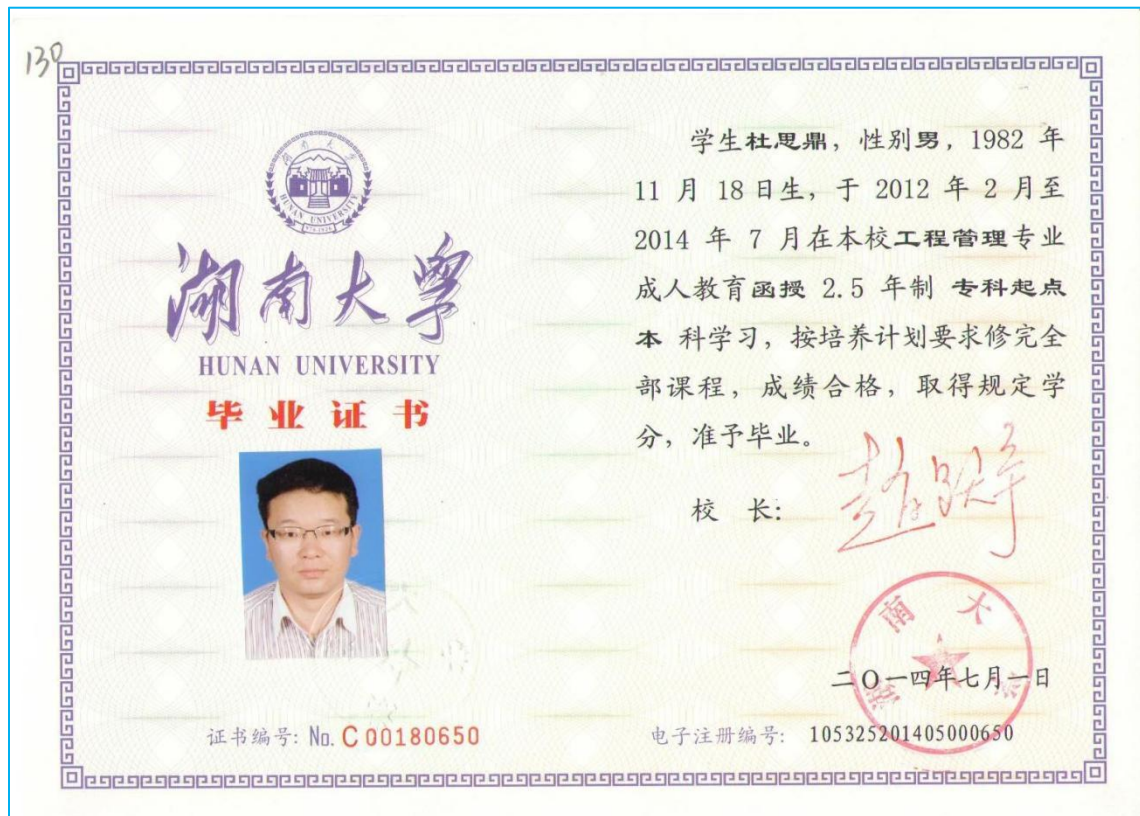 130
湖南大学
HUNAN UNIVERSITY
湖南大学
HUNAN UNIVERSITY
毕业证书
证书编号: No. C 00180650
学生杜思鼎，性别男，1982 年
11 月 18日生，于 2012 年 2 月至
2014 年 7 月在本校工程管理专业
成人教育函授 2.5 年制 专科起点
本 科学习，按培养计划要求修完全
部课程，成绩合格，取得规定学
分，准予毕业。
校 长:
湖南大学
二O一四年七月一日
电子注册编号: 105325201405000650